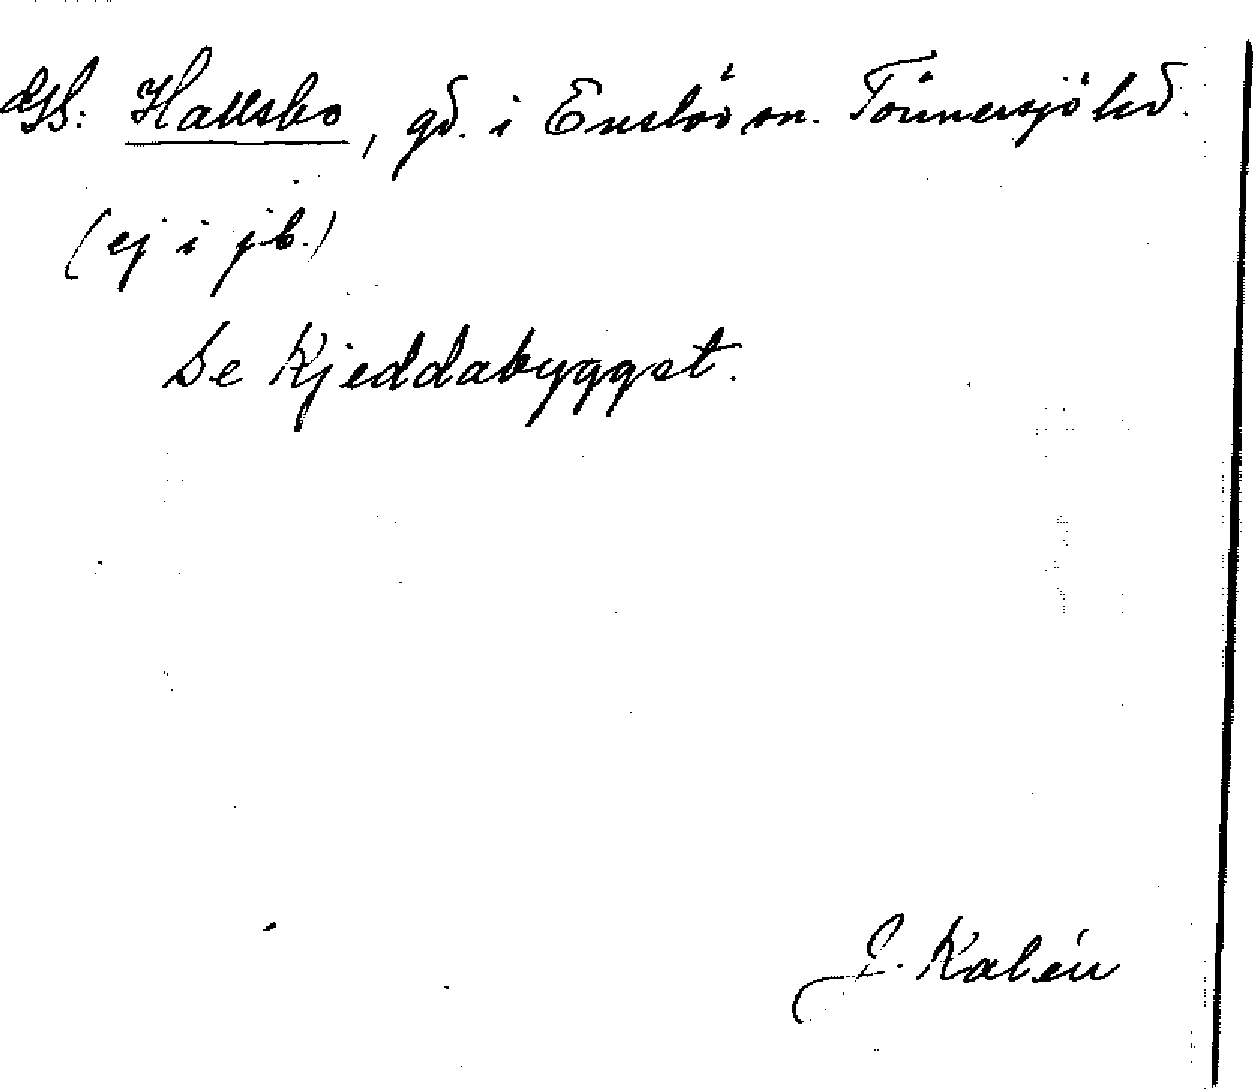 Hallsbo, gd. i Enslöv sn. Tönnersjö hd.
(ej i jb.)
Se Kjeddabygget.
J. Kalén